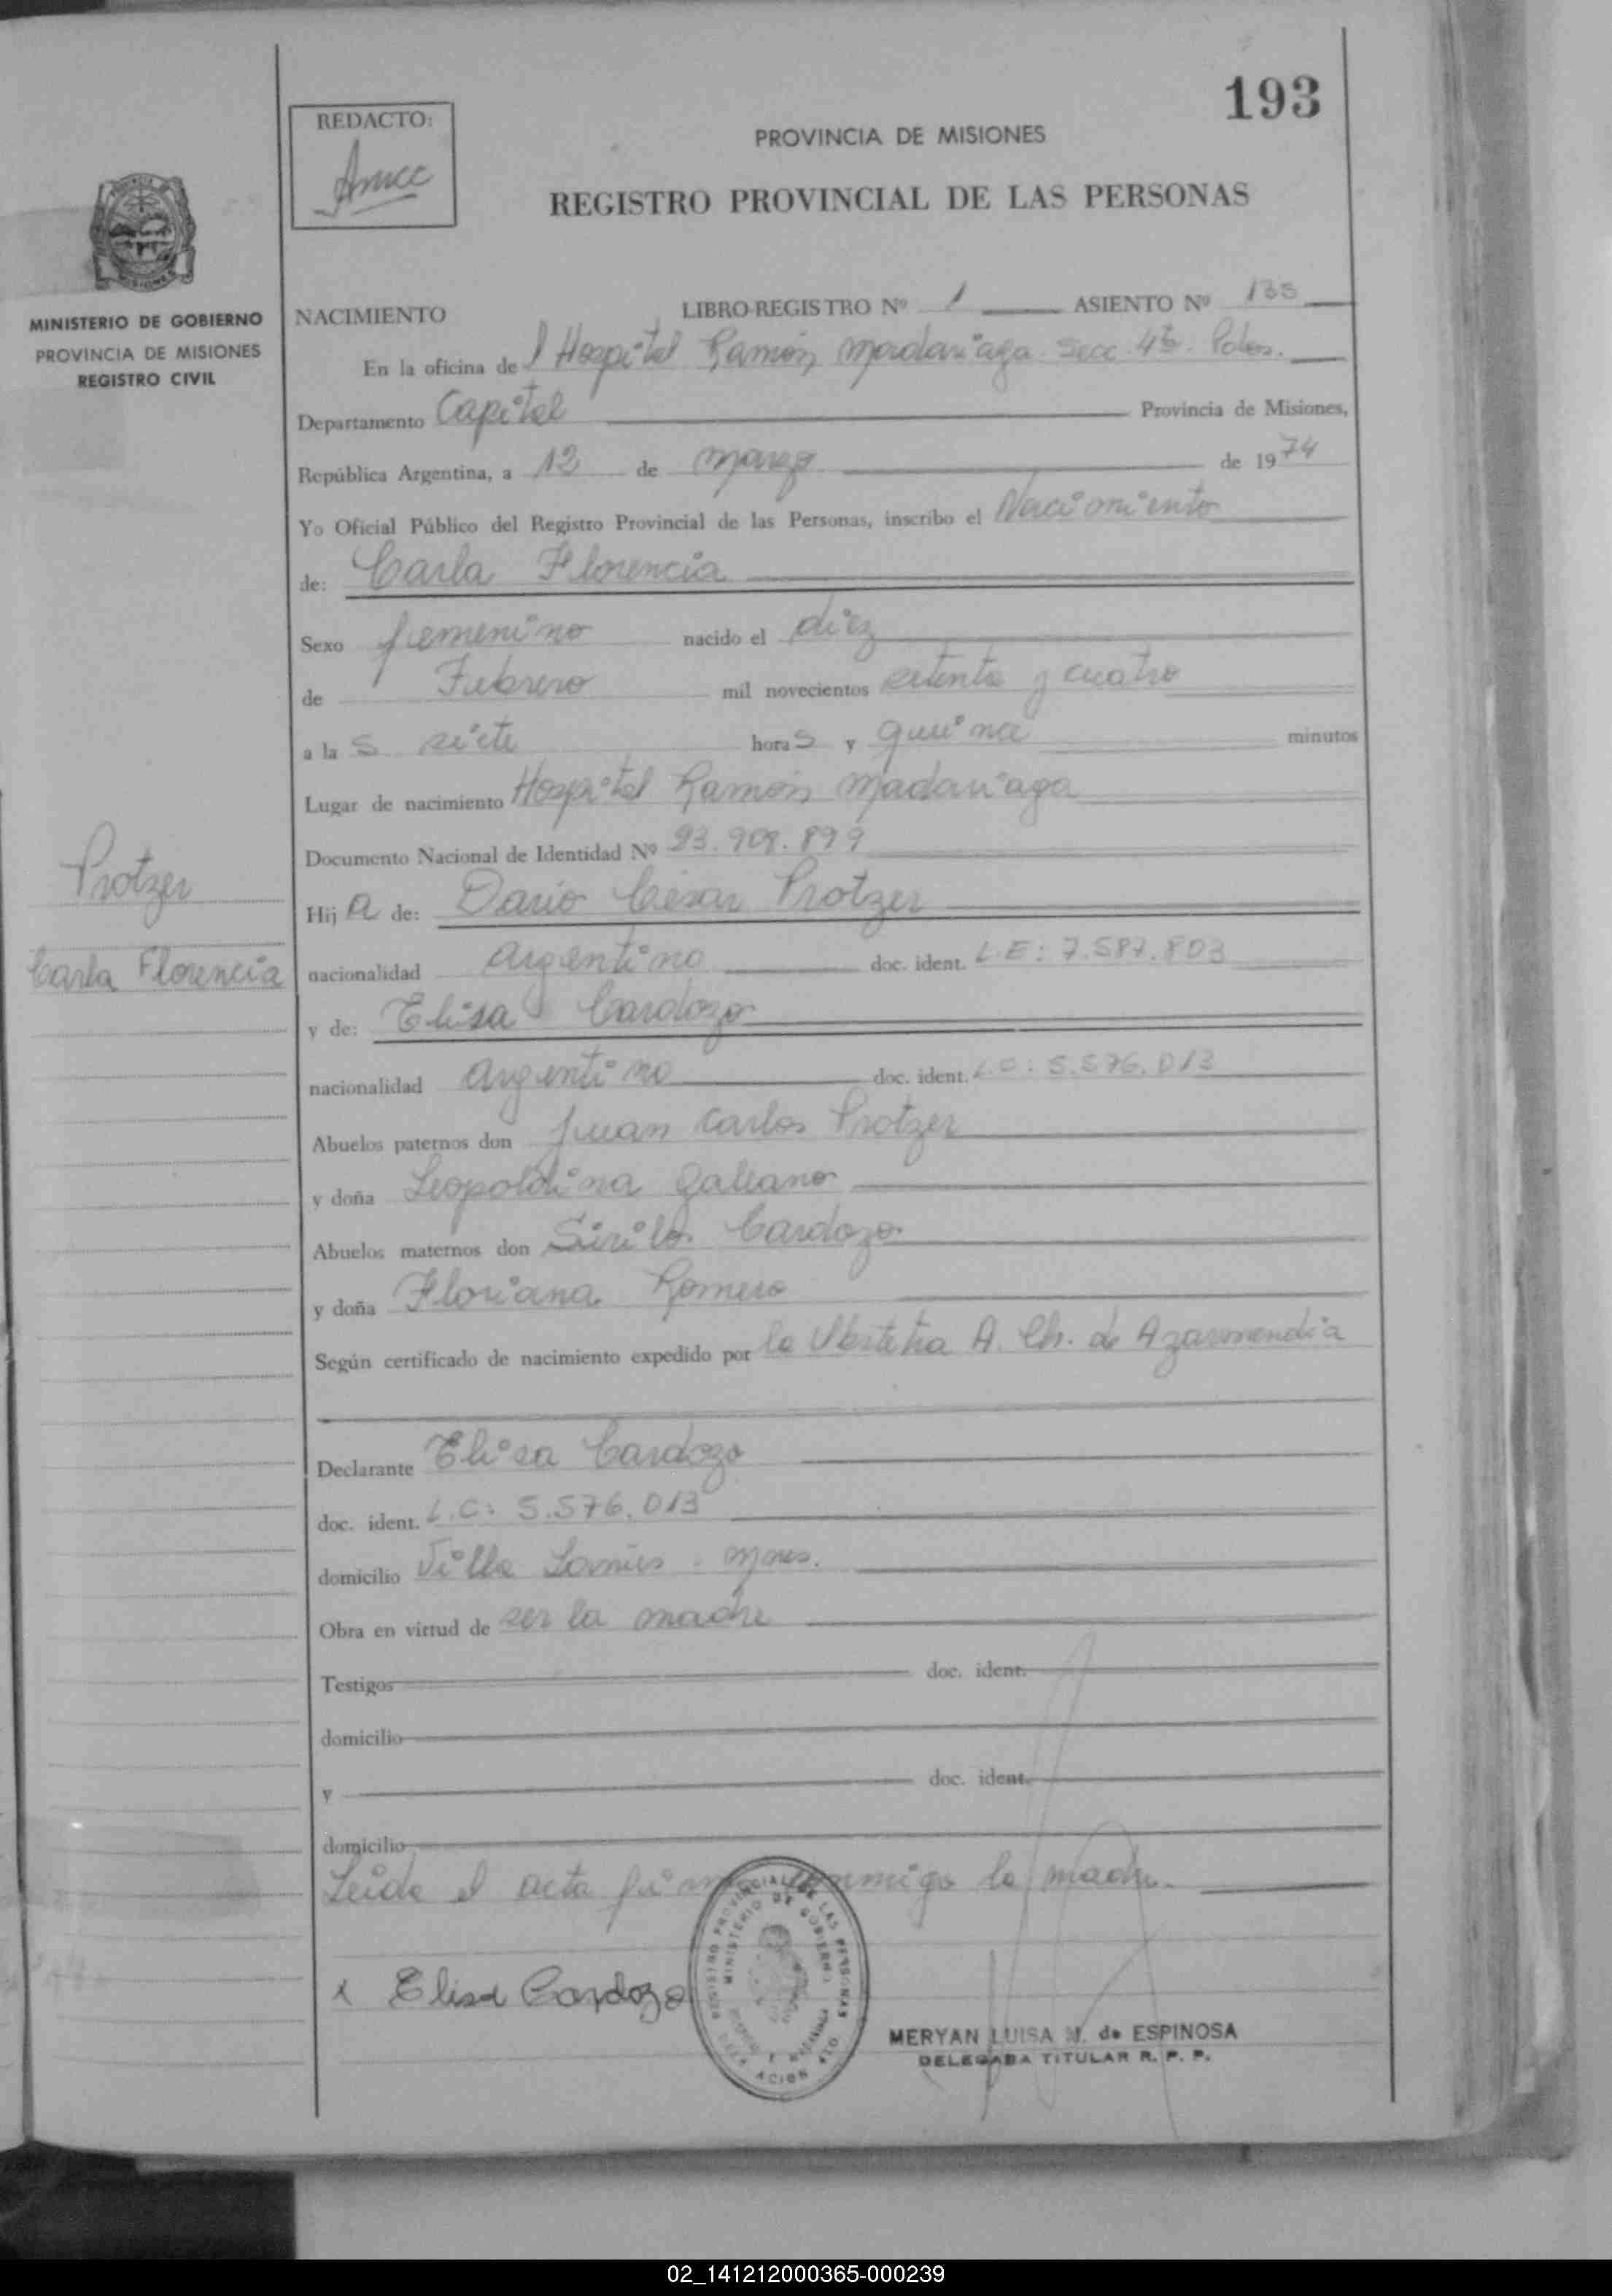 193
REDACTO:
PROVINCIA DE MISIONES
REGISTRO PROVINCIAL DE LAS PERSONAS
MINISTERIO DE GOBIERNO
PROVINCIA DE MISIONES
REGISTRO CIVIL
NACIMIENTO LIBRO-REGISTRO Nº 1 ASIENTO Nº
En la oficina de l Hospital Ramón Madariaga Secc. 4ta. Pdas.
Departamento Capital Provincia de Misiones,
República Argentina, a 12 de marzo de 1974
Yo Oficial Público del Registro Provincial de las Personas, inscribo el Nacimiento
de: Carla Florencia
Sexo femenino nacido el diez
de Febrero mil novecientos setenta y cuatro
a la s siete horas y quince minutos
Lugar de nacimiento Hospital Ramón Madariaga
Documento Nacional de Identidad Nº 23.909.899
Protzer
Hij a de: Dario César Protzer
Carla Florencia
nacionalidad argentino doc. ident. L.E: 7.587.803
y de: Elisa Cardozo
nacionalidad argentino doc. ident. L.C: 5.576.013
Abuelos paternos don Juan Carlos Protzer
y doña Leopoldina Galeano
Abuelos maternos don Sirilo Cardozo
y doña Floriana Romero
Según certificado de nacimiento expedido por la Obstetra A. Ch. de Azarmendia
Declarante Elisa Cardozo
doc. ident. L.C: 5.576.013
domicilio Villa Lanús - Mnes.
Obra en virtud de ser la madre
Testigos doc. ident.
domicilio
y doc. ident.
domicilio
Leida el acta firma conmigo la madre.
x Elisa Cardozo
REGISTRO PROVINCIAL DE LAS PERSONAS
MINISTERIO DE GOBIERNO
MERYAN LUISA M. de ESPINOSA
DELEGADA TITULAR R. P. P.
02_141212000365-000239